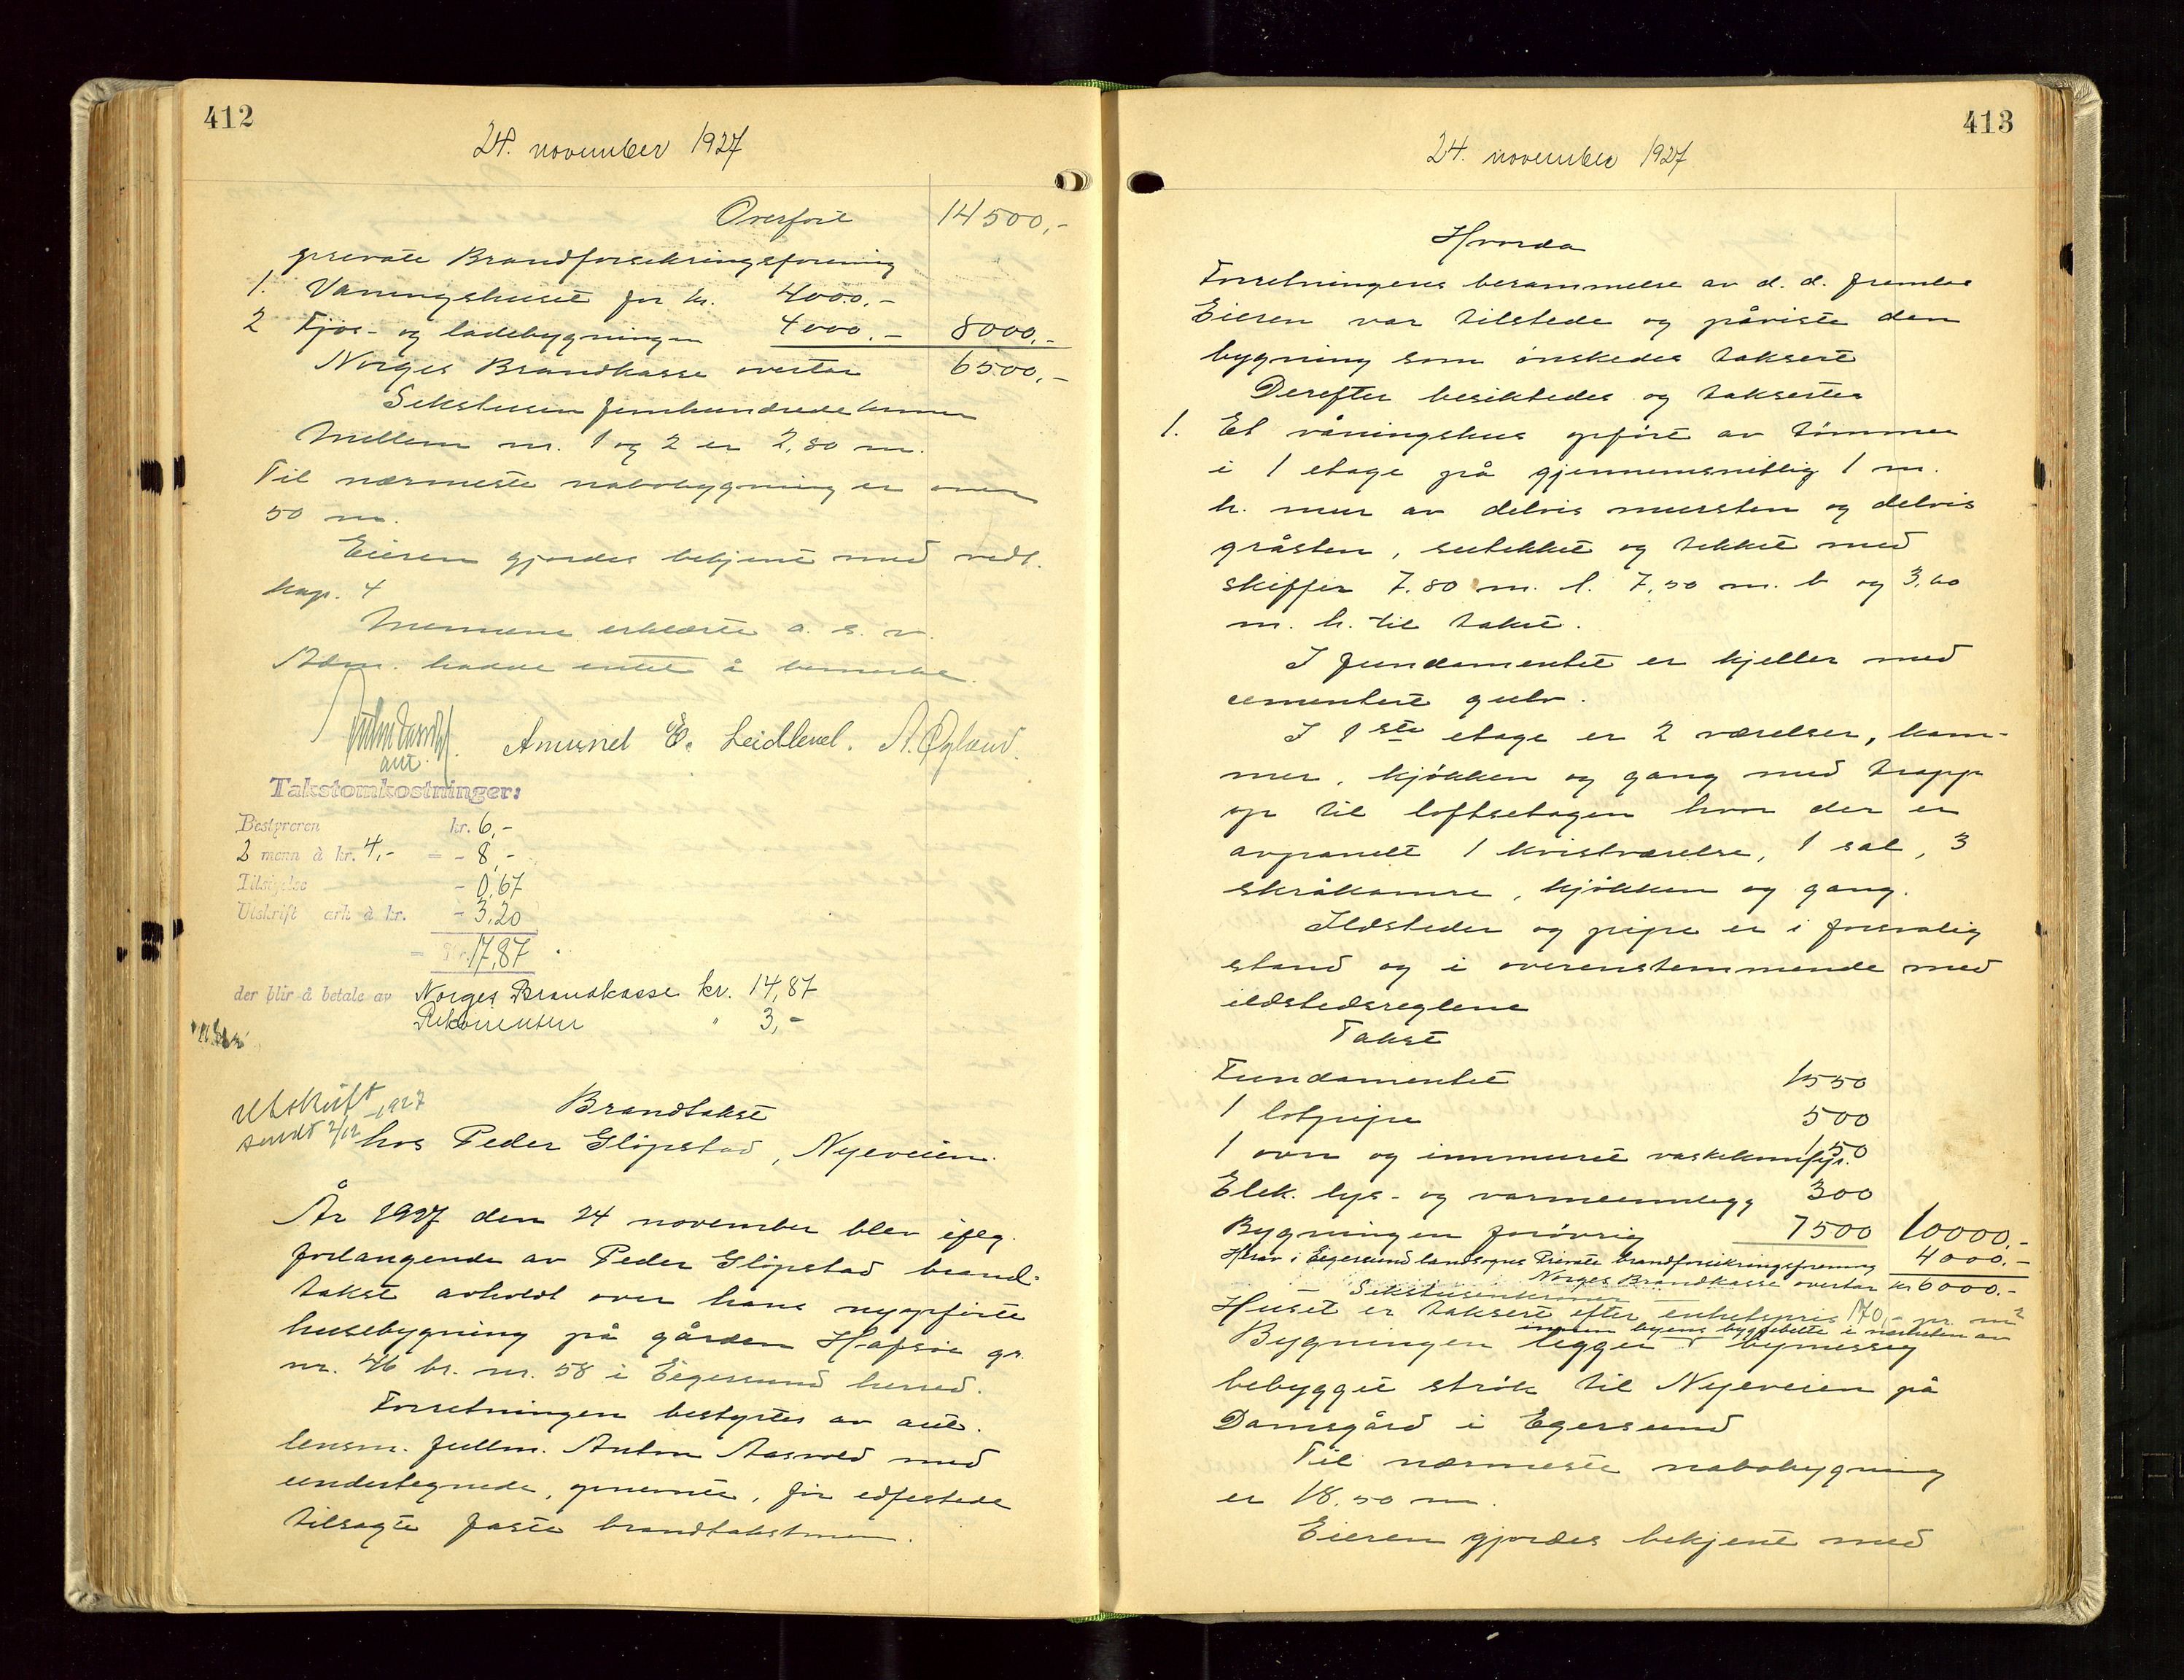 412
24. november 1927
Overført 14500,-
private Brandforsikringsforening
1. Våningshuset for kr. 4000.-
2 Fjøs- og ladebygningen 4000.- 8000.-
Norges Brandkasse overtar 6500,-
Sekstusen femhundrede kroner
Mellem nr. 1 og 2 er 2,80 m.
Til nærmeste nabobygning er over
50 m.
Eieren gjordes bekjent med vedt.
kap. 4
Mennene erklærte o. s. v.
Adm. hadde intet å bemerke.
aut. Amund E. Leidland. A. Øgland.
Takstomkostninger:
Bestyreren kr. 6,-
2 menn à kr. 4,- = - 8,-
Tilsigelse - 0,67
Utskrift ark à kr. - 3,20
= Kr. 17,87
der blir å betale av Norges Brandkasse kr. 14,87
Rekvirenten " 3,-
Utskrift
sendt 2/12 -1927
Brandtakst
hos Peder Slipstad, Nyeveien.
År 1927 den 24 november blev eflg.
forlangende av Peder Slipstad brand-
takst avholdt over hans nyopførte
husebygning på gården Hafsøe gr.
nr. 46 br. nr. 58 i Eigersund herred.
Forretningen bestyrtes av aut.
lensm. fullm. Anton Aasvold med
undertegnede, opnevnte, for edfestede
tilsagte faste brandtakstmen.
413
24. november 1927
Hvorda
Forretningens berammelse av d. d. fremlas
Eieren var tilstede og påviste den
bygning som ønskedes taksert
Derefter besiktedes og taksertes
1. Et våningshus opført av tømmer
i 1 etage på gjennemsnitlig 1 m.
h. mur av delvis mursten og delvis
gråsten, sutekket og tekket med
skiffer 7.80 m. l. 7,50 m. b og 3,60
m. h. til takst.
I fundamentet er kjeller med
cementert gulv.
I 1ste etage er 2 værelser, kam-
mer, kjøkken og gang med trapp
op til loftsetagen hvor der er
avpanelt 1 kvistværelse, 1 sal, 3
skråkamre, kjøkken og gang.
Ildsteder og pipe er i forsvalig
stand og i overenstemmende med
ildstedsreglene
Takst
Fundamentet 1550
1 lotpipe 500
1 ovn og innmuret vaskekomfyr. 150
Elek. lys- og varmeinnlegg 300
Bygningen forøvrig 7500 10000,-
Herav i Eigersund landsogns Private brandforsikringsforening 4000,-
Norges Brandkasse overtar kr 6000.-
Sekstusenkroner
Huset er taksert efter enhetspris 170,- pr. m²
innen byens byggebelte i nærheten av
Bygningen ligger i bymessig
bebygget strøk til Nyeveien på
Damsgård i Egersund
Til nærmeste nabobygning
er 18.50 m.
Eieren gjordes bekjent med